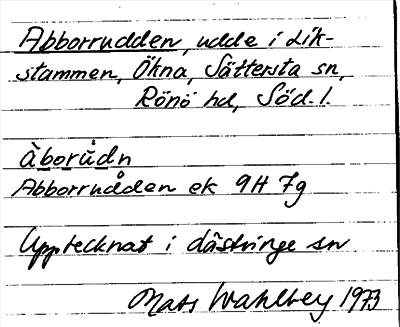 Abborrudden, udde i Lik-
stammen, Ökna, Sättersta sn,
Rönö hd, Söd. l.
àborùdn
Abborrudden ek 9H 7g
Upptecknat i Lästringe sn
Mats Wahlberg 1973